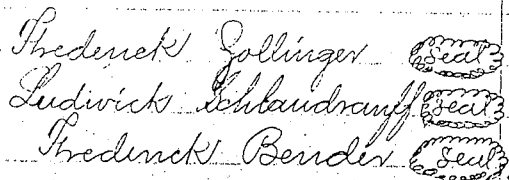 Frederick Zollinger Seal
Ludwick Schlaudrauff Seal
Frederick Bender Seal